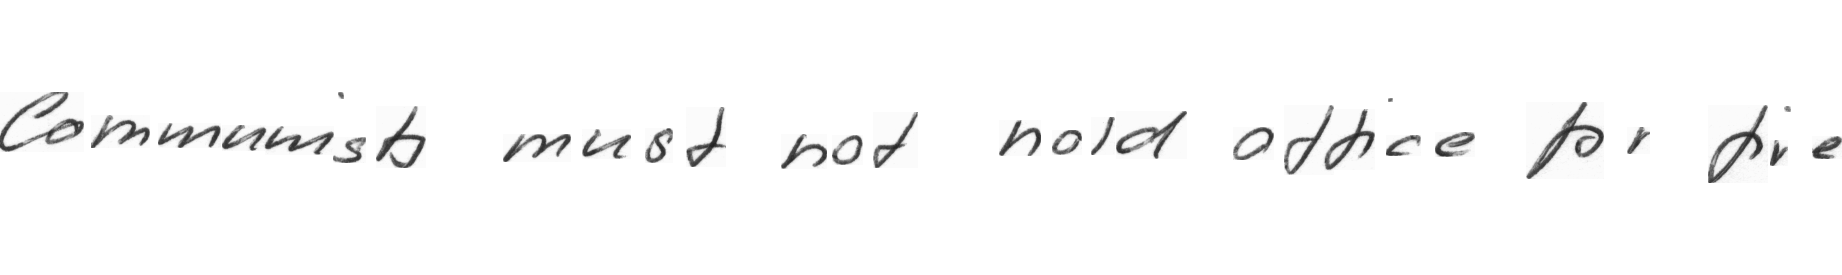 Communists must not hold office for five